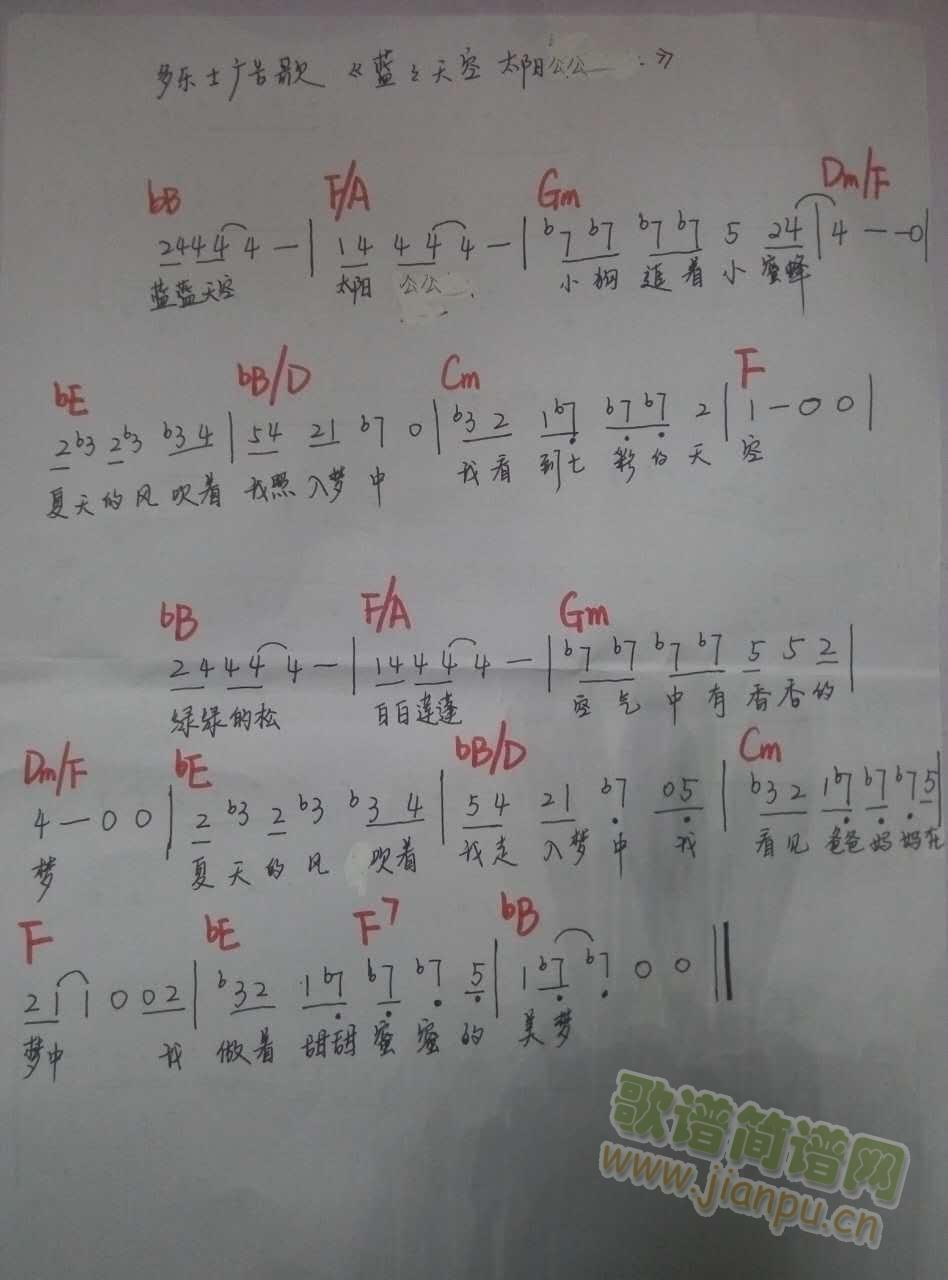 多乐士广告歌 《蓝々天空 太阳公公 》
bB F/A Gm Dm/F
2 4 4 4 4 — | 1 4 4 4 4 — | b7 b7 b7 b7 5 2 4 | 4 — — 0 |
蓝蓝天空 太阳 公公 小狗 追着小蜜蜂
bE bB/D Cm F
2 b3 2 b3 b3 4 | 5 4 2 1 b7 0 | b3 2 1 b7 b7 b7 2 | 1 — 0 0 |
夏天的风吹着 我照入梦中 我看到七彩的天 空
bB F/A Gm
2 4 4 4 4 — | 1 4 4 4 4 — | b7 b7 b7 b7 5 5 2 |
绿绿的松 白白莲蓬 空气中有香香的
Dm/F bE bB/D Cm
4 — 0 0 | 2 b3 2 b3 b3 4 | 5 4 2 1 b7 0 5 | b3 2 1 b7 b7 b7 5 |
梦 夏天的风吹着 我走入梦中 我 看见爸爸妈妈在
F bE F7 bB
2 1 1 0 0 2 | b3 2 1 b7 b7 b7 5 | 1 b7 b7 0 0 ‖
梦中 我 做着甜甜蜜蜜的 美梦
歌谱简谱网
www.jianpu.cn